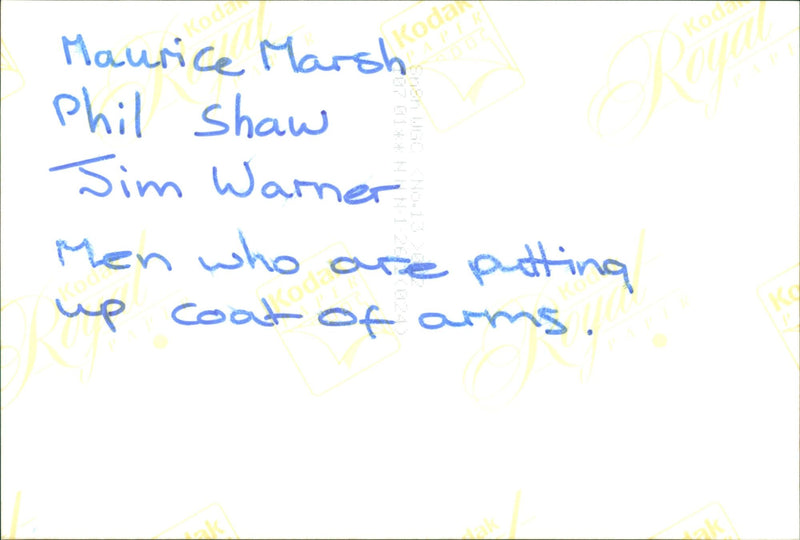 Maurice Marsh
Phil Shaw
Jim Warner
Men who are putting
up coat of arms.
Kodak
Royal
PAPIER